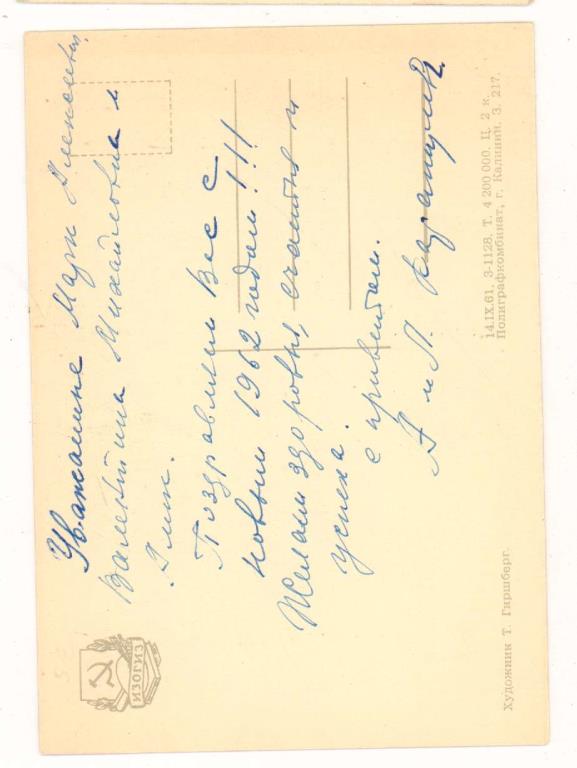 Уважаемые Марк Клементьев.
Валентина Михайловна и
Эмик.
Поздравляем Вас с
новым 1962 годом!!!
Желаем здоровья, счастья и
успеха.
с приветом.
А и Л.
ИЗОГИЗ
Художник Т. Гиршберг.
14.IX.61. З-1128. Т. 4 200 000. Ц. 2 к.
Полиграфкомбинат, г. Калинин. З. 217.